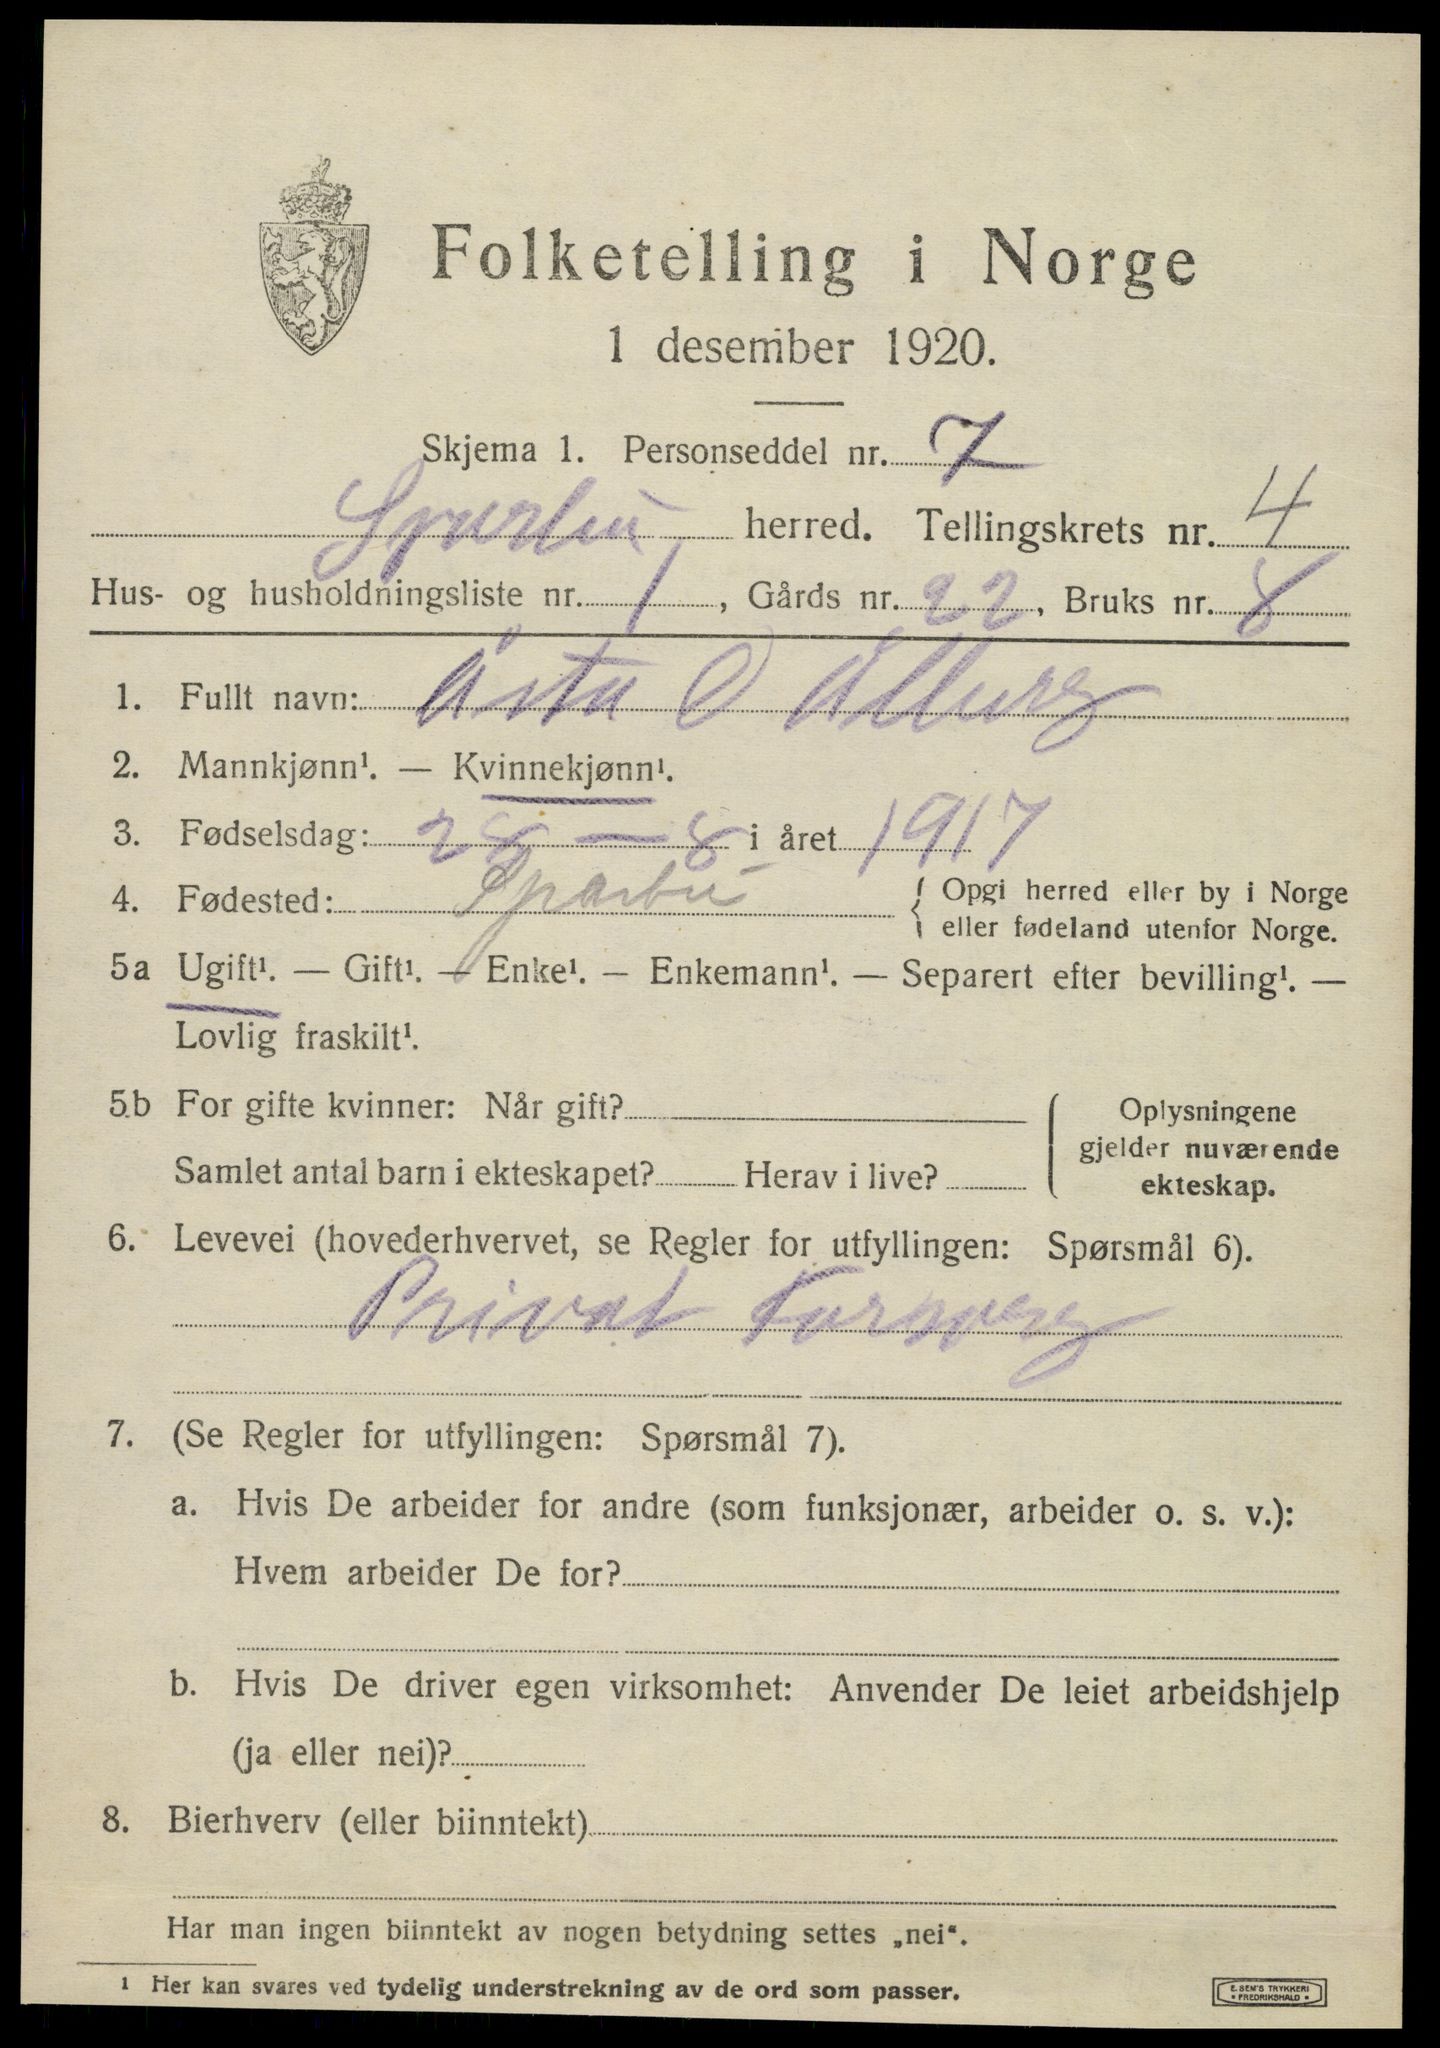 Folketelling i Norge
1 desember 1920.
Skjema 1. Personseddel nr. 7
Sparbu herred. Tellingskrets nr. 4
Hus- og husholdningsliste nr. 1, Gårds nr. 22, Bruks nr. 8
1. Fullt navn: Åsta O Ålberg
2. Mannkjønn¹. — Kvinnekjønn¹.
3. Fødselsdag: 28 — 8 i året 1917
4. Fødested: Sparbu { Opgi herred eller by i Norge
eller fødeland utenfor Norge.
5a Ugift¹. — Gift¹. — Enke¹. — Enkemann¹. — Separert efter bevilling¹. —
Lovlig fraskilt¹.
5b For gifte kvinner: Når gift?
Samlet antal barn i ekteskapet? Herav i live?
Oplysningene
gjelder nuværende
ekteskap.
6. Levevei (hovederhvervet, se Regler for utfyllingen: Spørsmål 6).
Privat Forsørg
7. (Se Regler for utfyllingen: Spørsmål 7).
a. Hvis De arbeider for andre (som funksjonær, arbeider o. s. v.):
Hvem arbeider De for?
b. Hvis De driver egen virksomhet: Anvender De leiet arbeidshjelp
(ja eller nei)?
8. Bierhverv (eller biinntekt)
Har man ingen biinntekt av nogen betydning settes „nei“.
1 Her kan svares ved tydelig understrekning av de ord som passer.
E. SEM'S TRYKKERI
• FREDRIKSHALD •